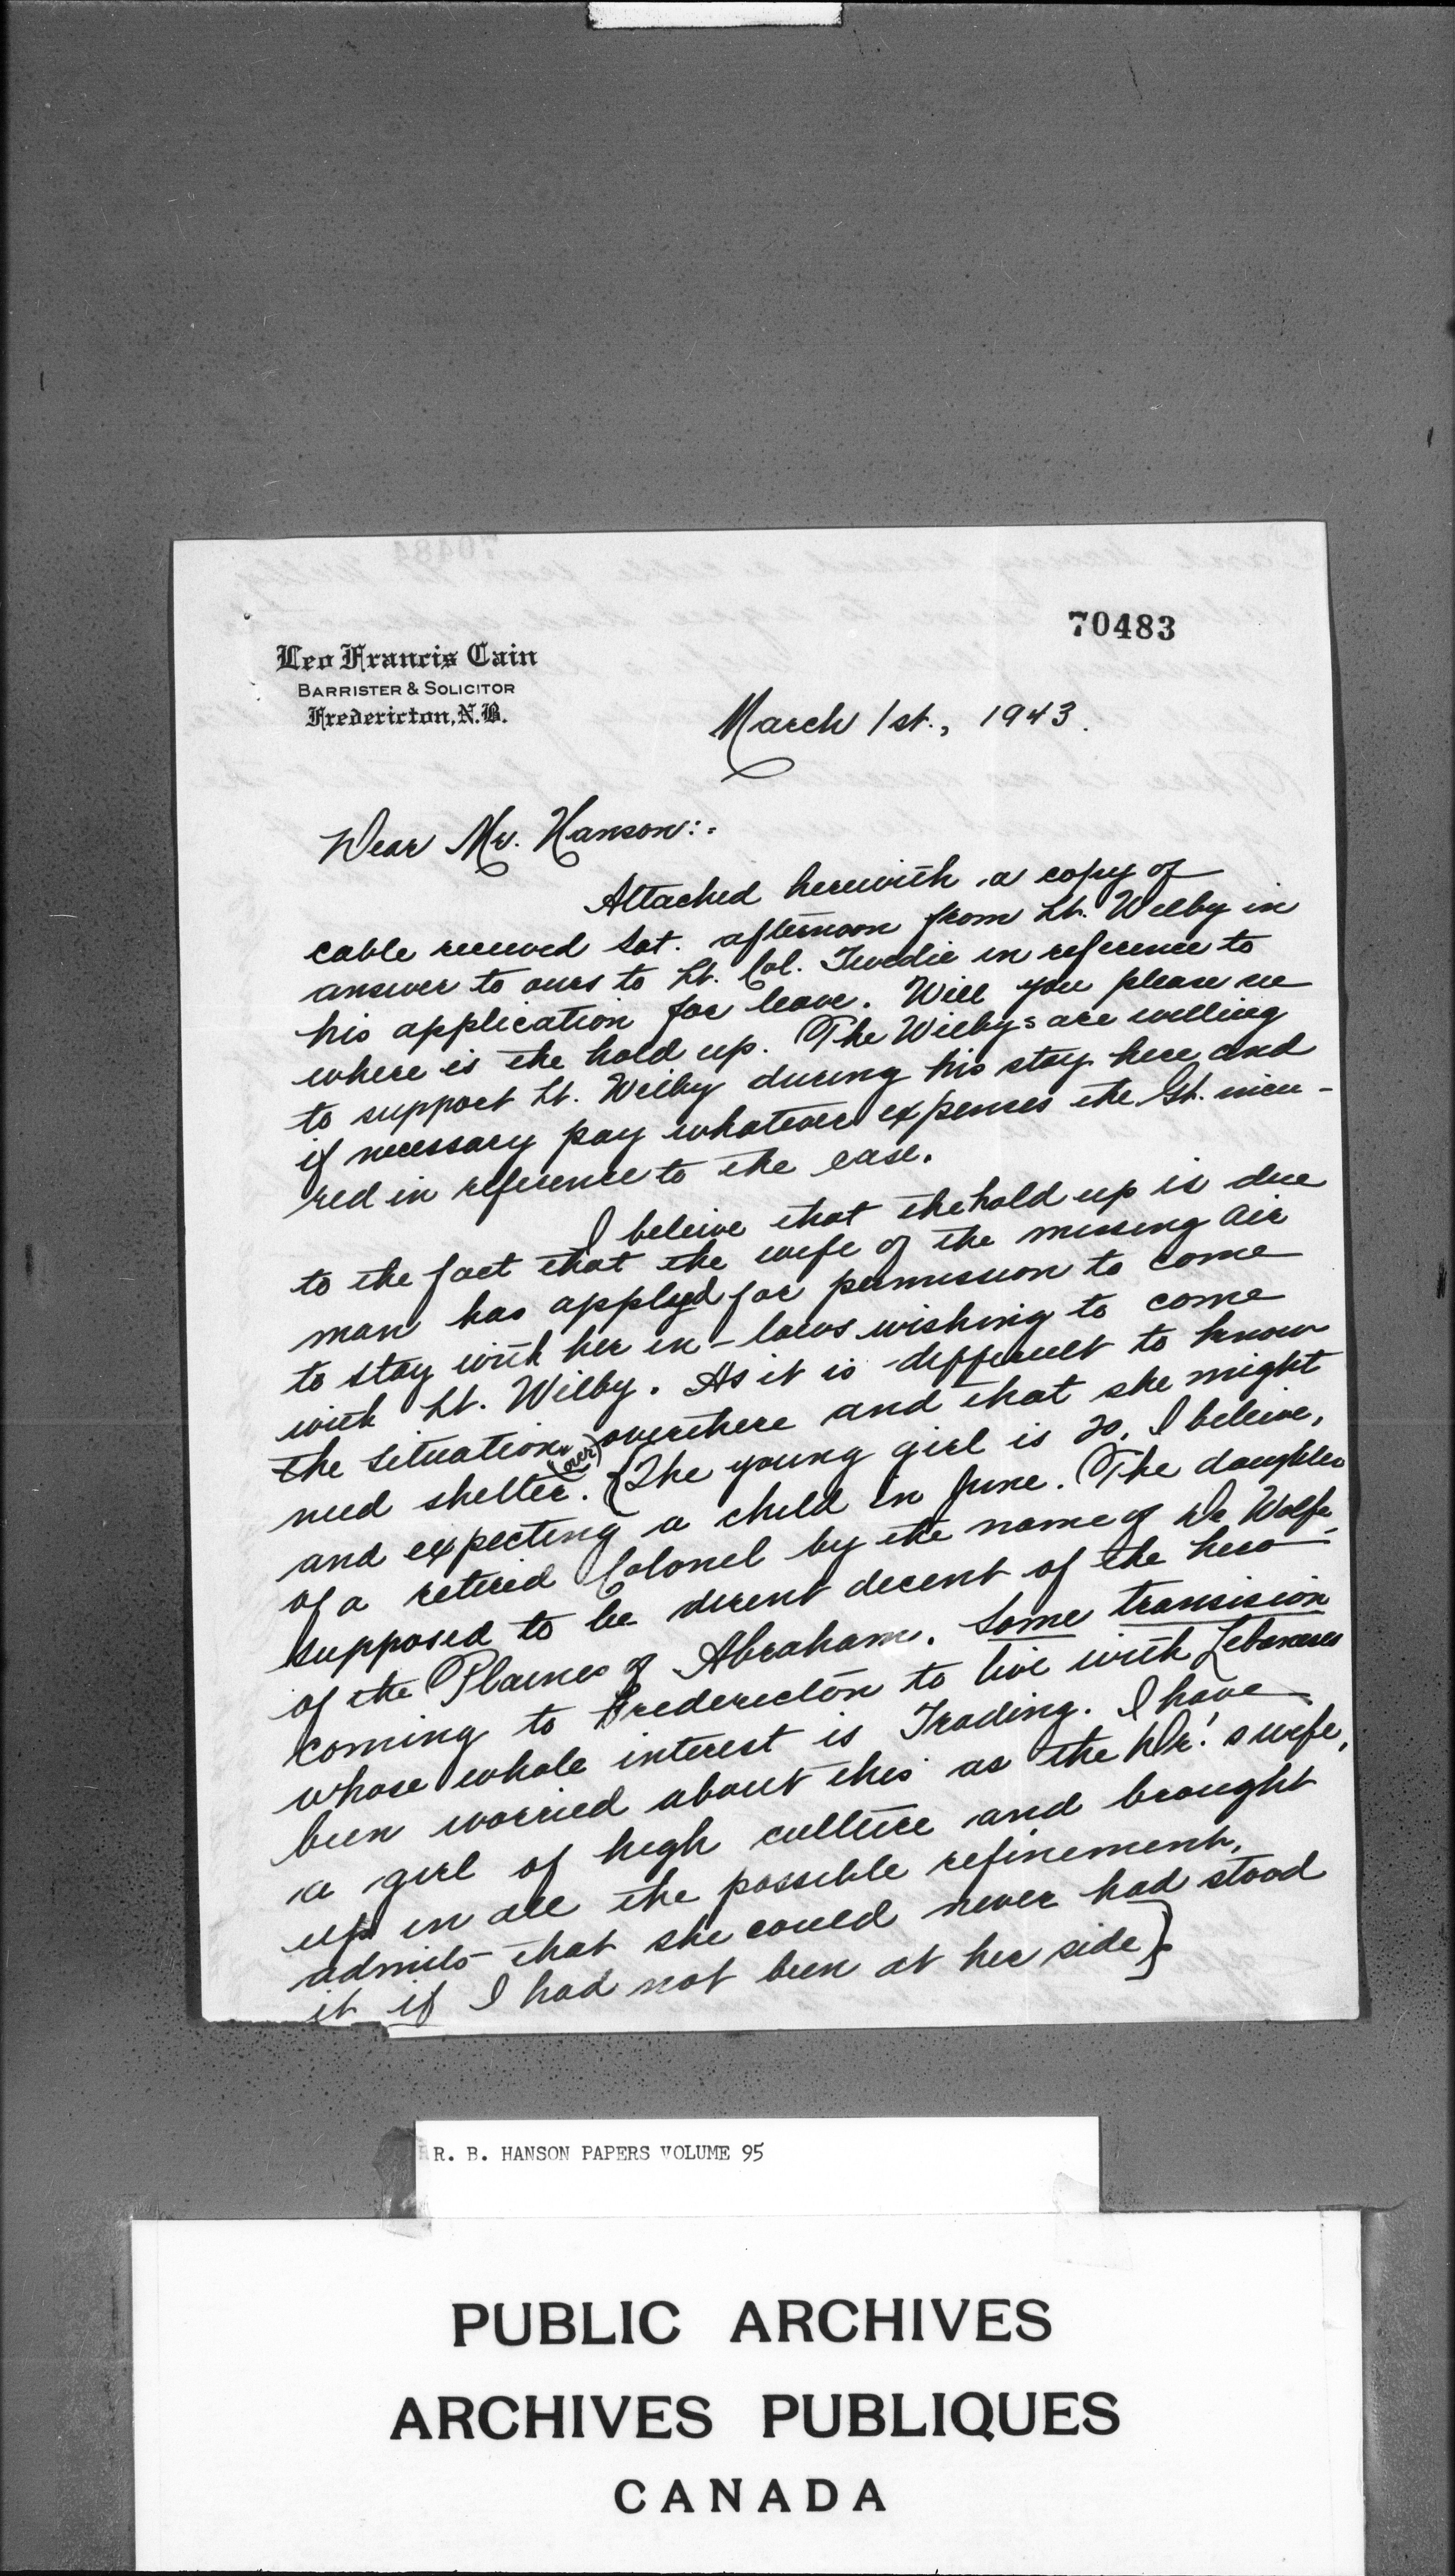 70483
Leo Francis Cain
BARRISTER & SOLICITOR
Fredericton, N.B.
March 1st., 1943.
Dear Mr. Hanson:-
Attached herewith a copy of
cable received Sat. afternoon from Lt. Wilby in
answer to ours to Lt. Col. Twedie in reference to
his application for leave. Will you please see
where is the hold up. The Wilbys are willing
to support Lt. Wilby during his stay here and
if necessary pay whatever expenses the Gt. incu-
red in reference to the case.
I beleive that the hold up is due
to the fact that the wife of the missing air
man has applyed for permission to come
to stay with her in-laws wishing to come
with Lt. Wilby. As it is difficult to know
the situation overthere and that she might
need shelter. (over) {The young girl is 20, I beleive,
and expecting a child in June. The daughter
of a retired Colonel by the name of De Wolfe
supposed to be dirent decent of the hero
of the Plaines of Abraham. Some transision
coming to Fredericton to live with Lebaneses
whose whole interest is Trading. I have
been worried about this as the Dr.'s wife,
a girl of high culture and brought
up in all the possible refinement,
admits that she could never had stood
it if I had not been at her side}.
R. B. HANSON PAPERS VOLUME 95
PUBLIC ARCHIVES
ARCHIVES PUBLIQUES
CANADA